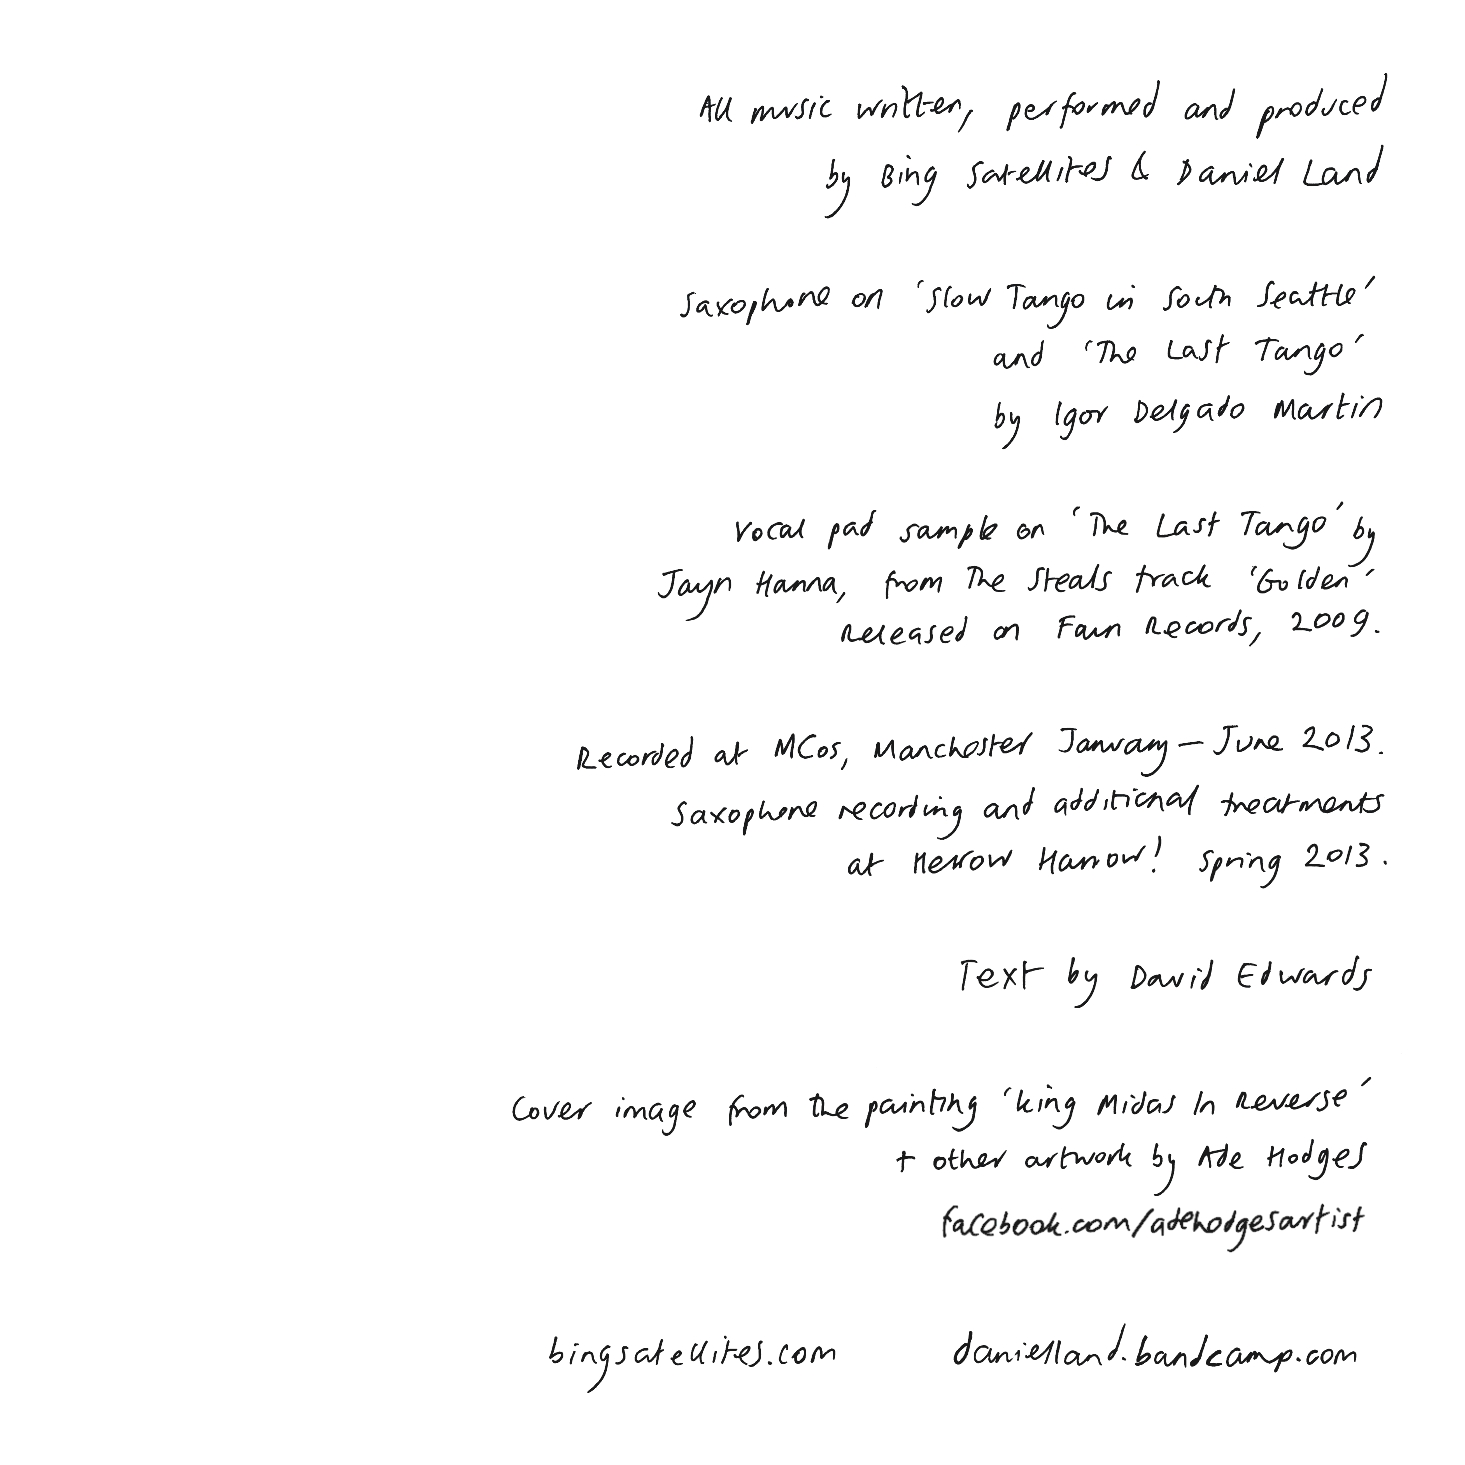 All music written, performed and produced
by Bing Satellites & Daniel Land
Saxophone on 'Slow Tango in South Seattle'
and 'The Last Tango'
by Igor Delgado Martin
Vocal pad sample on 'The Last Tango' by
Jayn Hanna, from The Steals track 'Golden'
Released on Faun Records, 2009.
Recorded at MCos, Manchester January – June 2013.
Saxophone recording and additional treatments
at Merrow Harrow! Spring 2013.
Text by David Edwards
Cover image from the painting 'King Midas In Reverse'
+ other artwork by Ade Hodges
facebook.com/adehodgesartist
bingsatellites.com danielland.bandcamp.com